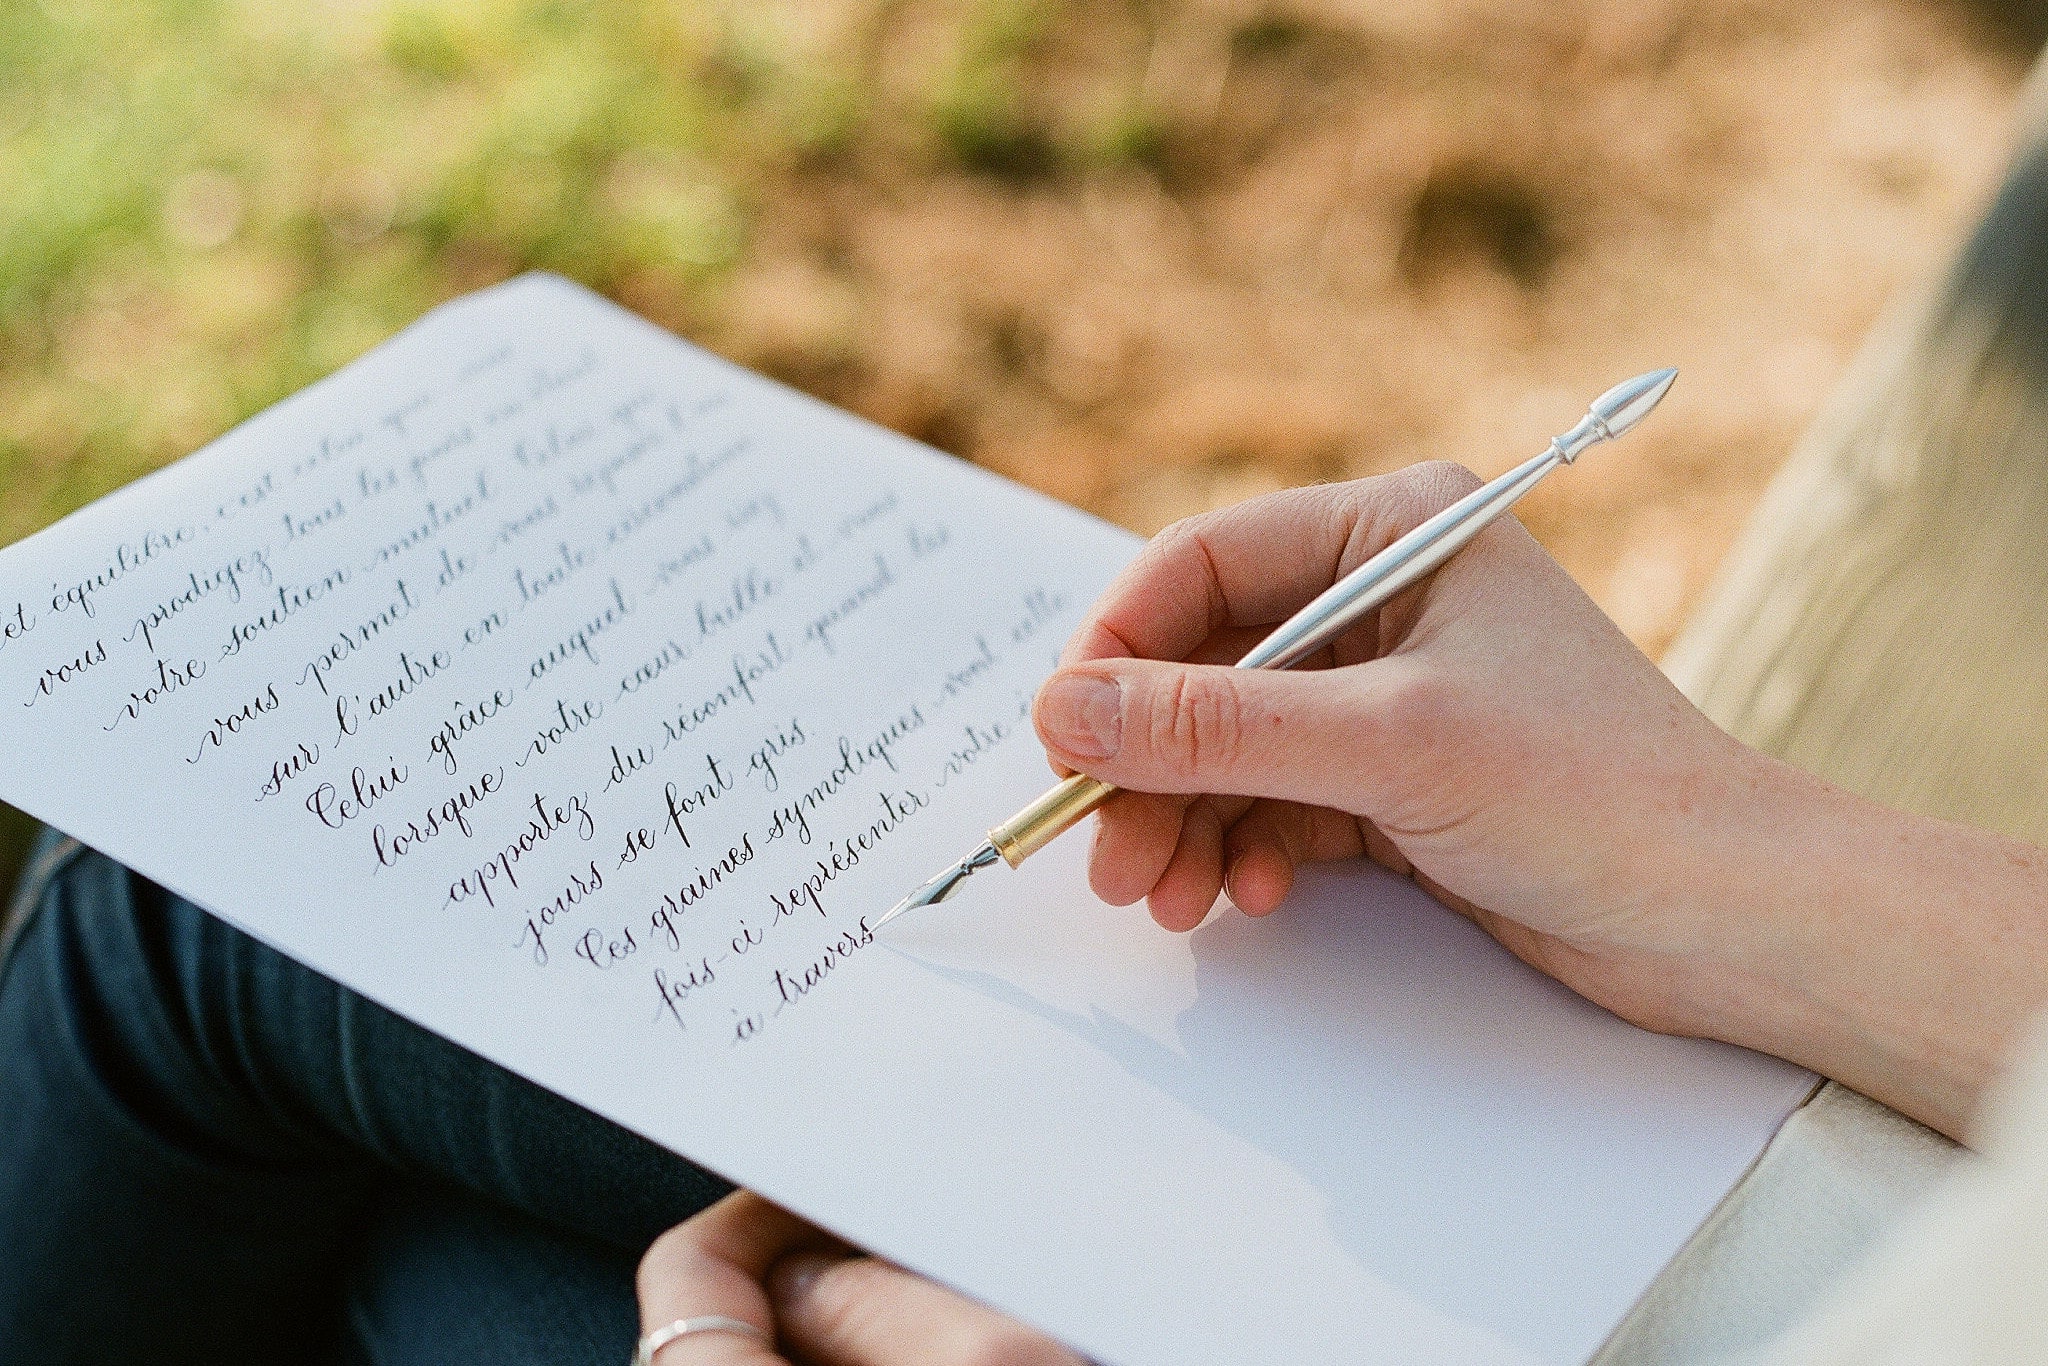 cet équilibre, c'est celui que vous
vous prodiguez tous les jours en étant
votre soutien mutuel. Celui qui
vous permet de vous reposer l'un
sur l'autre en toute circonstance
Celui grâce auquel vous riez
lorsque votre cœur brille et vous
apportez du réconfort quand les
jours se font gris.
Ces graines symoliques vont cette
fois-ci représenter votre
à travers